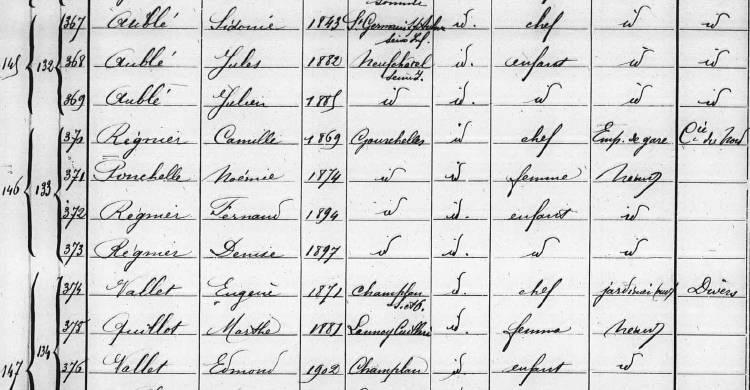 Somme
367 Aublé Sidonie 1843 St Germain id. chef id id
145 132 368 Aublé Jules 1882 Neufchatel id. enfant id id
369 Aublé Julien 1885 id id. id id id
370 Régnier Camille 1869 Gourchelles id chef Emp. de gare Cie du Nord
371 Ponchelle Noémie 1874 id id femme néant
146 133 372 Régnier Fernand 1894 id id. enfant id
373 Régnier Denise 1897 id id. id id
374 Vallet Eugène 1871 Champlan d. chef jardinier Divers
S. et O.
375 Quillot Marthe 1881 Launay id. femme néant
147 134 376 Vallet Edmond 1902 Champlan id. enfant id